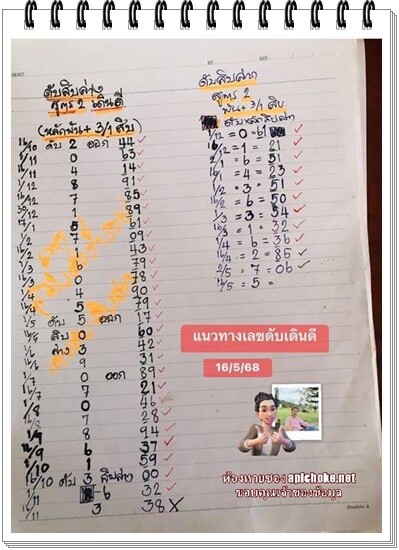 ดับสิบล่าง
สูตร 2 เดินดี
(หลักพัน + 3/1 สิบ)
16/10 ดับ 2 ออก 44 ✓
1/11 0 63 ✓
4 14 ✓
8 91 ✓
7 85 ✓
1 89 ✓
5 61 ✓
7 09 ✓
43 ✓
79 ✓
6 78 ✓
0 90 ✓
4 79 ✓
5 17 ✓
ดับ 5 ออก
สิบ 0 60 ✓
ล่าง 3 42 ✓
9 31 ✓
0 ออก 89 ✓
7 21 ✓
0 46 ✓
7 28 ✓
8 94 ✓
6 37 ✓
1 59 ✓
16/10 ดับ 3 สิบล่าง 00 ✓
6 32 ✓
3 38 X
ดับสิบล่าง
สูตร 2
พัน + 3/1 สิบ
ดับหลักสิบล่าง
1/12 = 0 = 61
16/12 = 1 = 21 ✓
= 6 = 51 ✓
= 4 = 23 ✓
= 3 = 51 ✓
= 6 = 50 ✓
1/3 = 3 = 54 ✓
16/3 = 1 = 32 ✓
1/4 = 6 = 36 ✓
16/4 = 2 = 85 ✓
2/5 = 7 = 06 ✓
16/5 = 5 =
แนวทางเลขดับเดินดี
16/5/68
ห้องหวยซอง apichoke.net
ขอบคุณเจ้าของข้อมูล
Double A